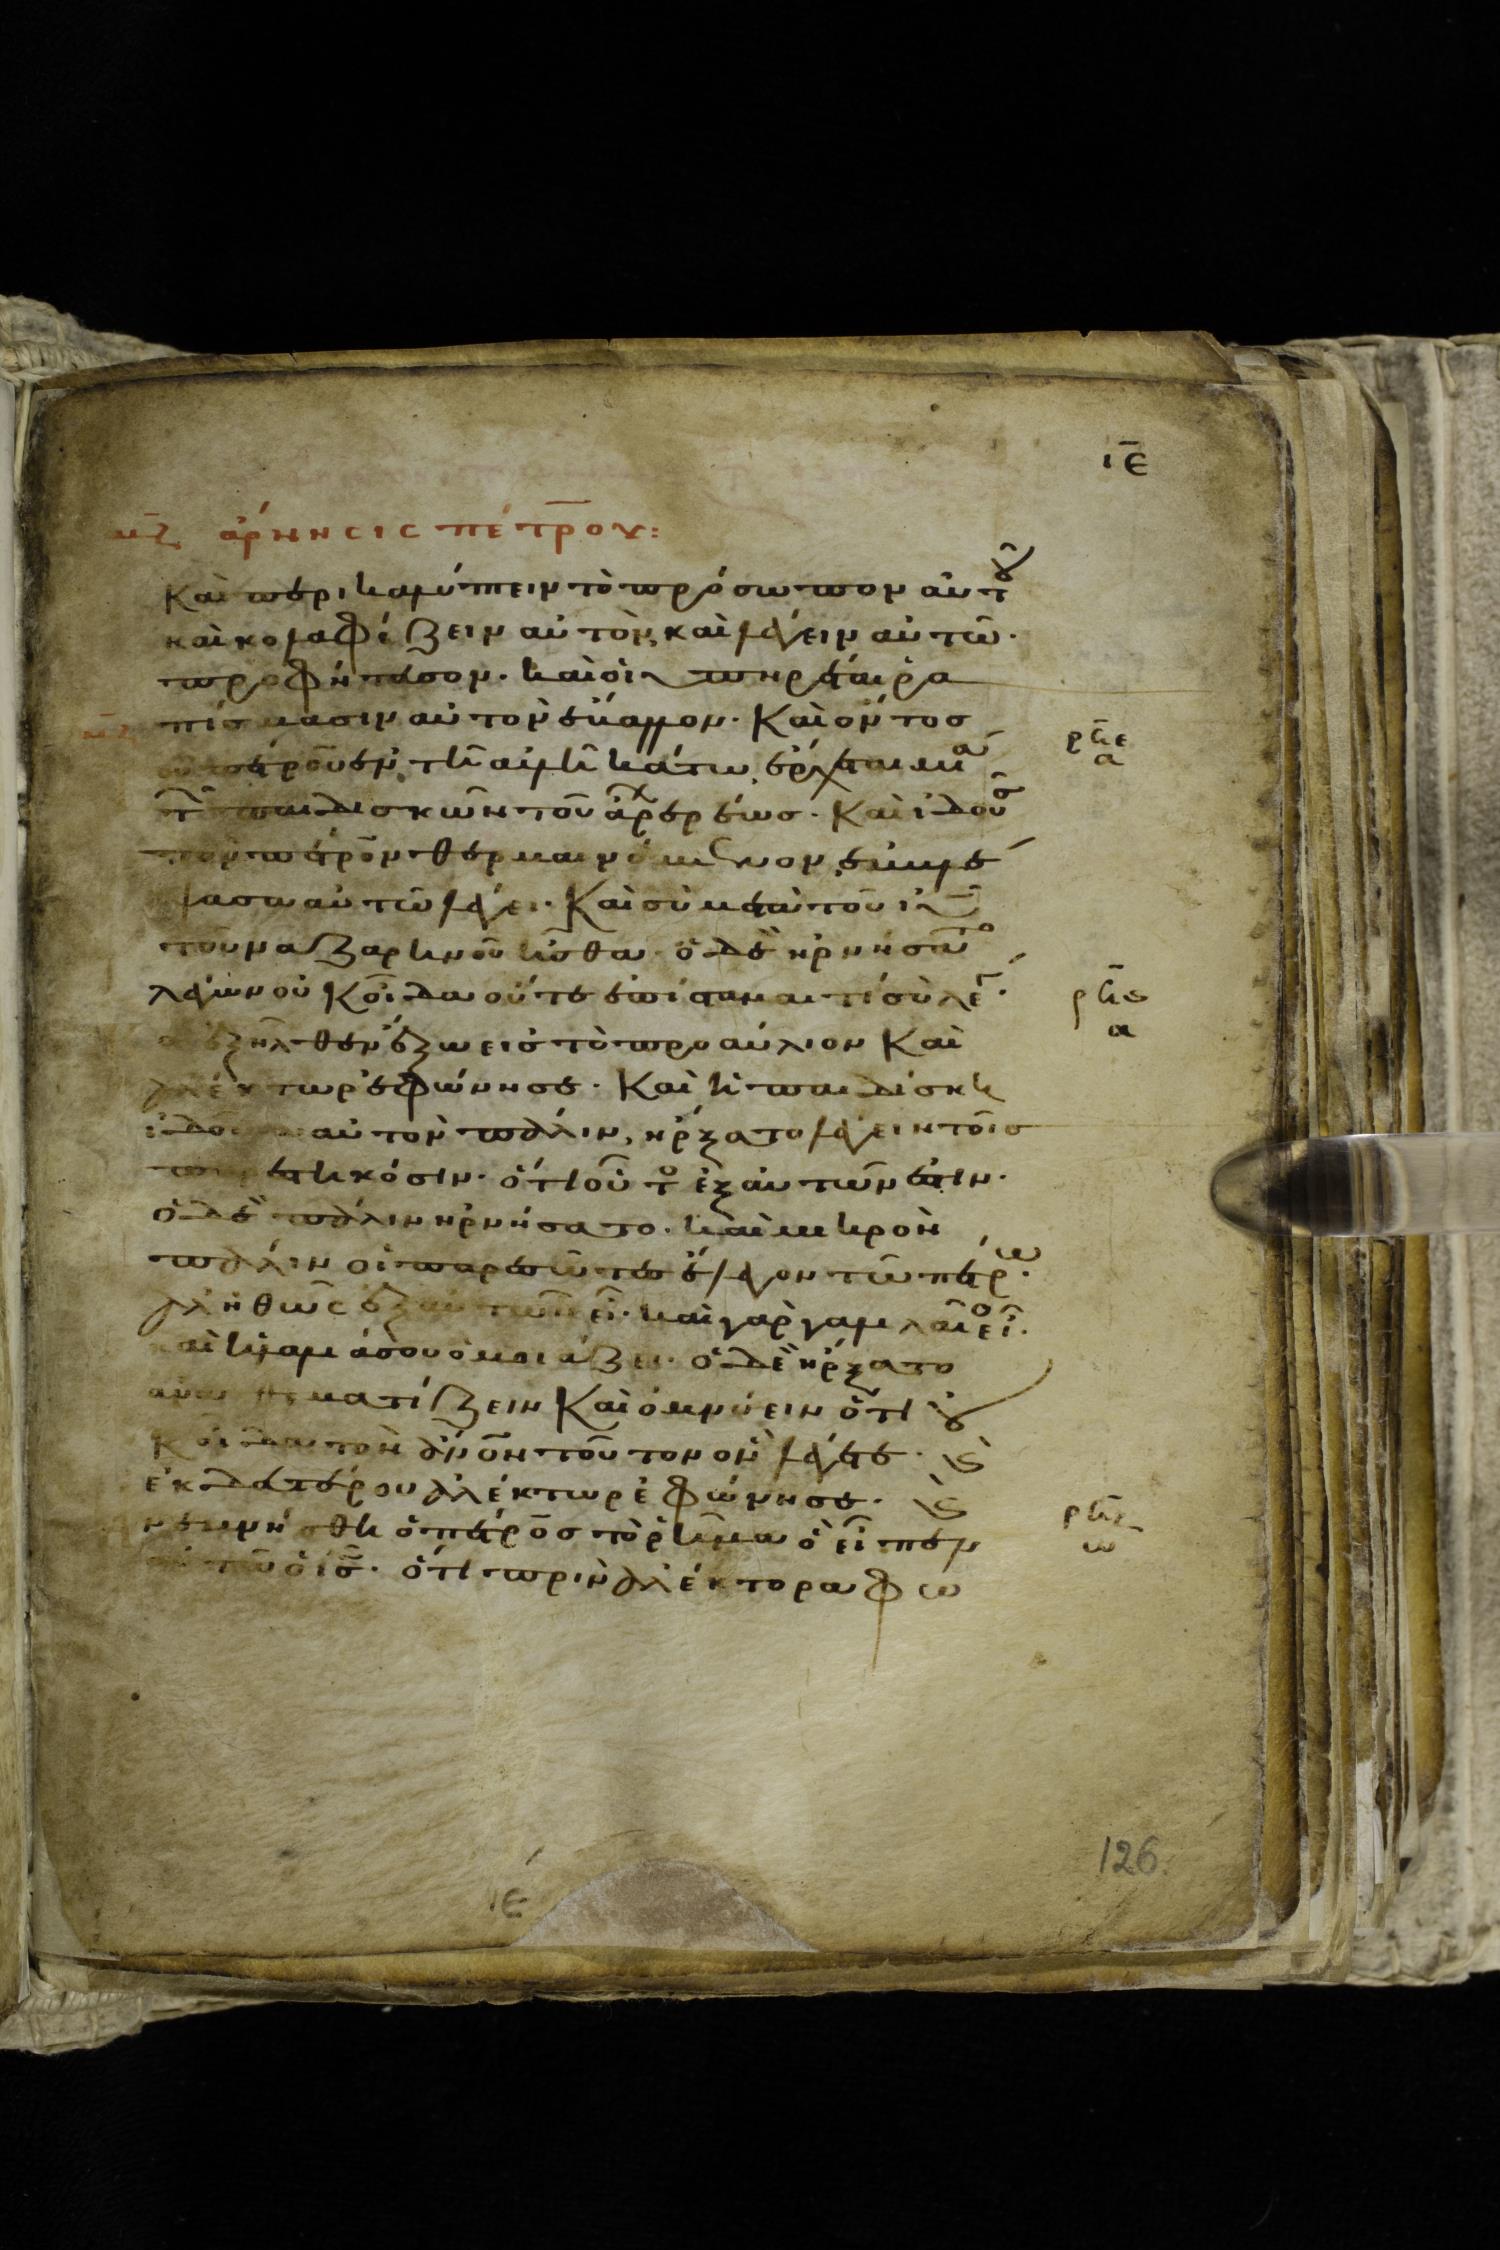 ιε
μζ ἄρνησις πέτρου:
Καὶ περικαλύπτειν τὸ πρόσωπον αὐτοῦ
καὶ κολαφίζειν αὐτὸν, καὶ λέγειν αὐτῶ·
προφήτευσον· καὶ οἱ ὑπηρέται ῥα
πίσμασιν αὐτὸν ἔβαλλον· Καὶ ὄντος
πέτρου ἐν τῆ αὐλῆ κάτω, ἔρχεται μία
τῶν παιδισκῶν τοῦ ἀρχερέως· Καὶ ἰδοῦσα
τὸν πέτρον θερμαινόμενον, ἐμβλέ
ψασα αὐτῶ λέγει· Καὶ σὺ μετὰ τοῦ ιυ
τοῦ ναζαρηνοῦ ἦσθα· ὁ δὲ ἠρνήσατο
λέγων οὐκ οἶδα οὔτε ἐπίσταμαι τί σὺ λέγεις·
ἐξῆλθεν ἔξω εἰς τὸ προαύλιον Καὶ
ἀλέκτωρ ἐφώνησε· Καὶ ἡ παιδίσκη
ἰδοῦσα αὐτὸν πάλιν, ἤρξατο λέγειν τοῖς
παρεστηκόσιν· ὅτι οὗτος ἐξ αὐτῶν ἐστιν·
ὁ δὲ πάλιν ἠρνήσατο· καὶ μικρὸν
πάλιν οἱ παρεστῶτες ἔλεγον τῶ πέτρω·
ἀληθῶς ἐξ αὐτῶν εἶ· καὶ γὰρ γαλιλαῖος εἶ·
καὶ ἡ λαλιά σου ὁμοιάζει· ὁ δὲ ἤρξατο
ἀναθεματίζειν Καὶ ὀμνύειν ὅτι οὐ
κ οἶδα τὸν ἄνον τοῦτον ὃν λέγετε· Καὶ
ἐκ δευτέρου ἀλέκτωρ ἐφώνησε· Καὶ
ἀνεμνήσθη ὁ πέτρος τὸ ῥῆμα ὃ εἶπεν
αὐτῶ ὁ ις· ὅτι πρὶν ἀλέκτορα φω
ρπε
α
ρπς
α
ρπζ
ιε
126